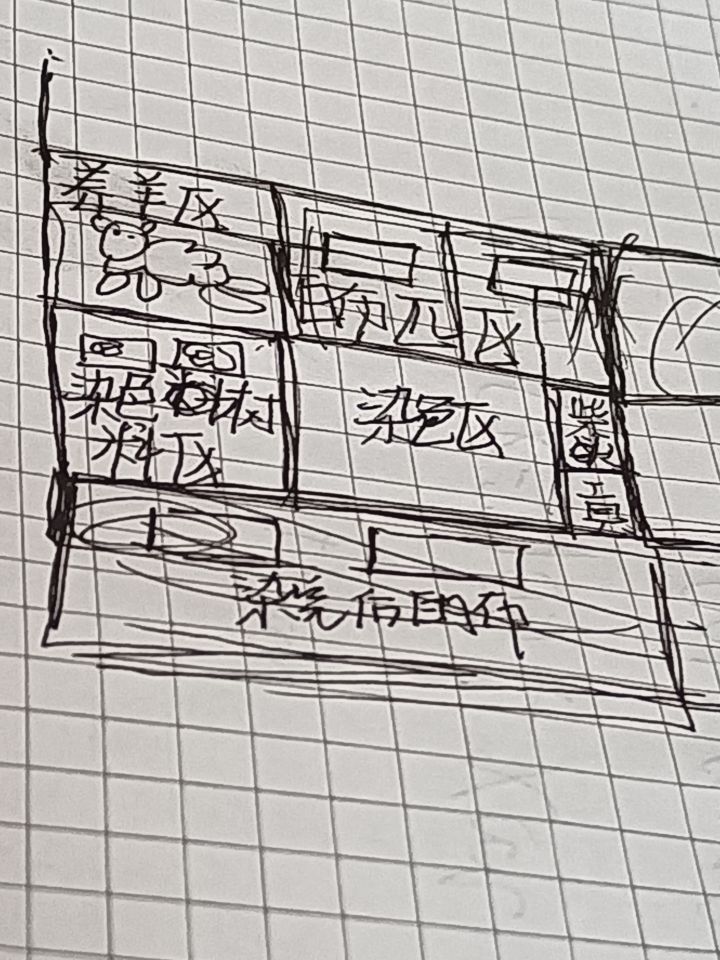 养羊区
区
染色材
料区
染色区
柴火
工具
染完后的布